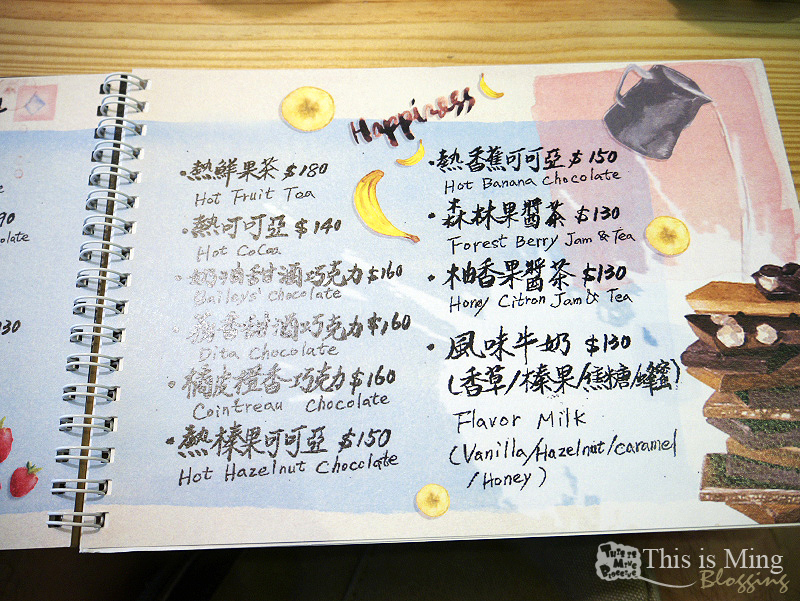 Happiness
90
olate
130
•熱鮮果茶 $180
Hot Fruit Tea
•熱可可亞 $140
Hot CoCoa
•奶油甜酒巧克力 $160
Baileys' chocolate
•荔香甜酒巧克力 $160
Dita Chocolate
•橘皮橙香巧克力 $160
Cointreau Chocolate
•熱榛果可可亞 $150
Hot Hazelnut Chocolate
•熱香蕉可可亞 $150
Hot Banana Chocolate
•森林果醬茶 $130
Forest Berry Jam & Tea
•柚香果醬茶 $130
Honey Citron Jam & Tea
•風味牛奶 $130
(香草/榛果/焦糖/蜂蜜)
Flavor Milk
(Vanilla/Hazelnut/caramel
/Honey)
This is Ming
Blogging